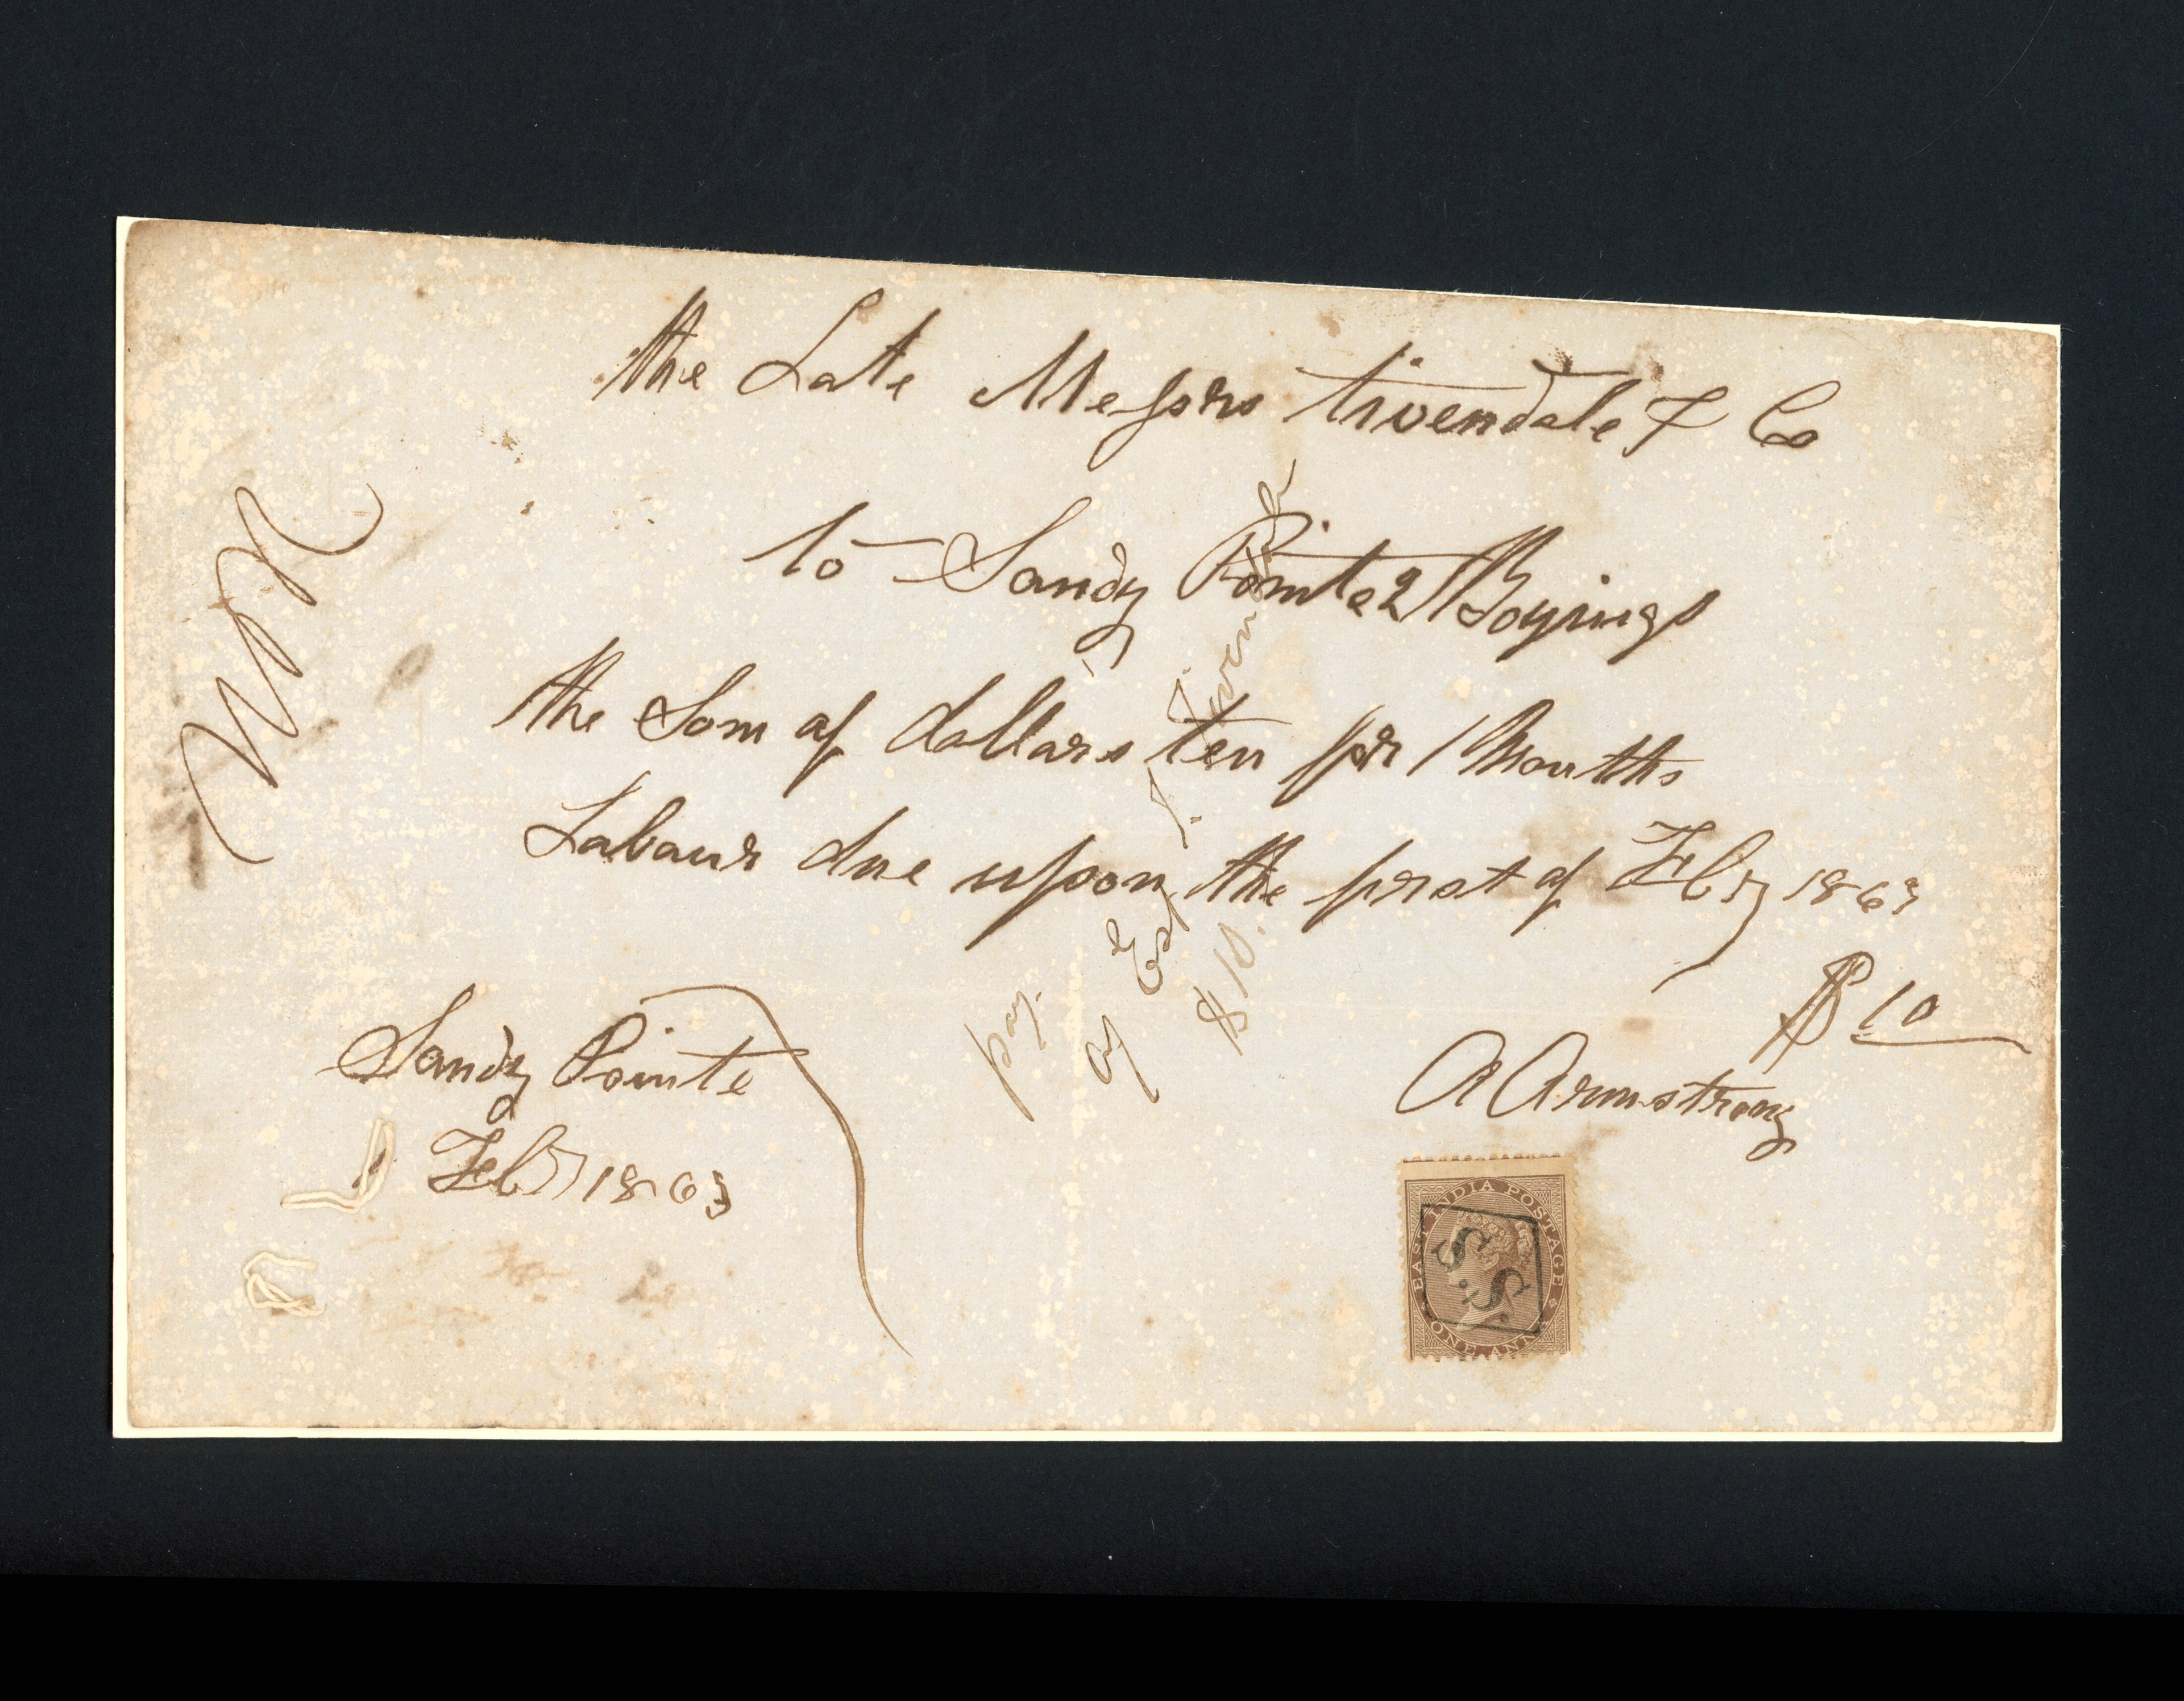 the Late Messrs Tivendale & Co
to Sandy Pointe 2 Boyings
the Som of dollars ten for 1 Months
Labour due upon the first of Feby 1863
$ 10
A Armstrong
Sandy Pointe
1 Feby 1863
pay.
of Est J. Tivendale
$10.
EAST INDIA POSTAGE
S.S.
ONE ANNA